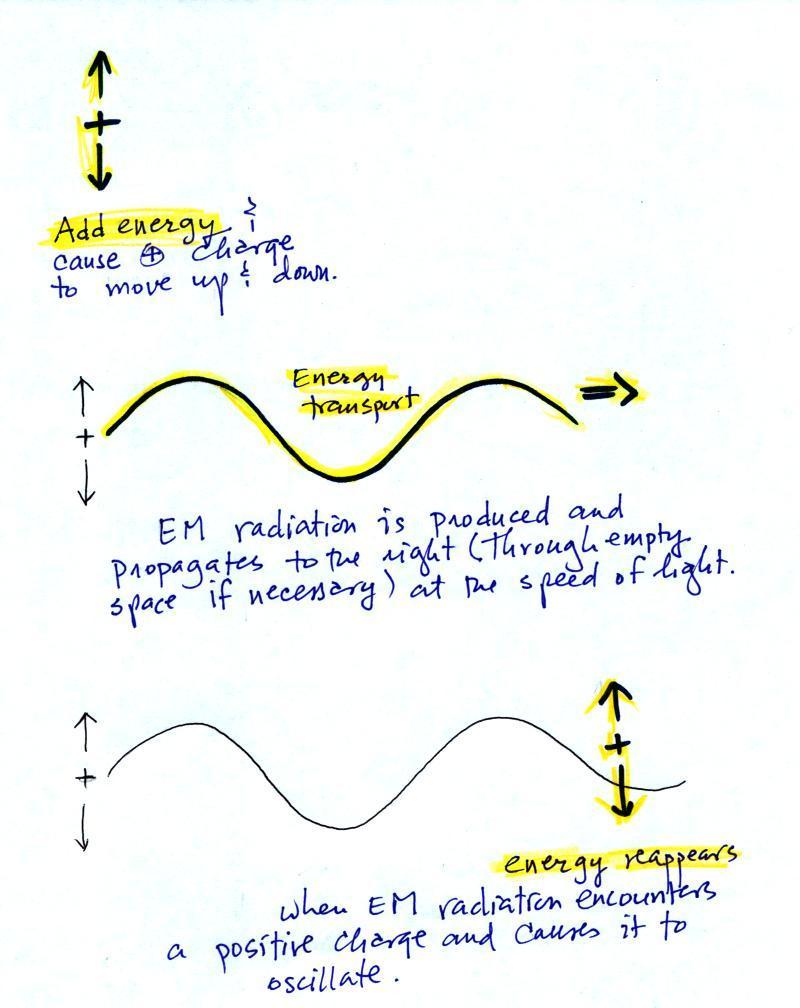 +
Add energy &
cause ⊕ charge
to move up & down.
Energy
transport
+
EM radiation is produced and
propagates to the right (through empty
space if necessary) at the speed of light.
+
+
energy reappears
when EM radiation encounters
a positive charge and causes it to
oscillate.